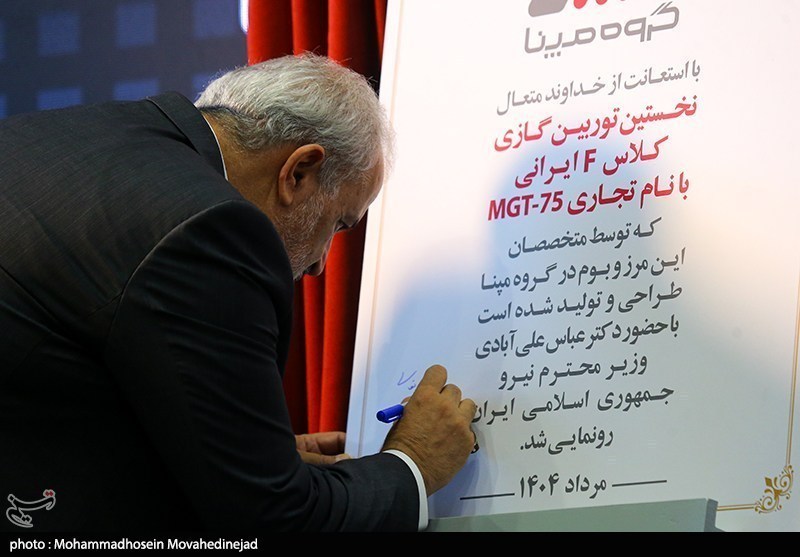 گروه مپنا
با استعانت از خداوند متعال
نخستین توربین گازی
کلاس F ایرانی
با نام تجاری MGT-75
که توسط متخصصان
این مرز و بوم در گروه مپنا
طراحی و تولید شده است
با حضور دکتر عباس علی آبادی
وزیر محترم نیرو
جمهوری اسلامی ایران
رونمایی شد.
مرداد ۱۴۰۴
تسنیم
photo : Mohammadhosein Movahedinejad